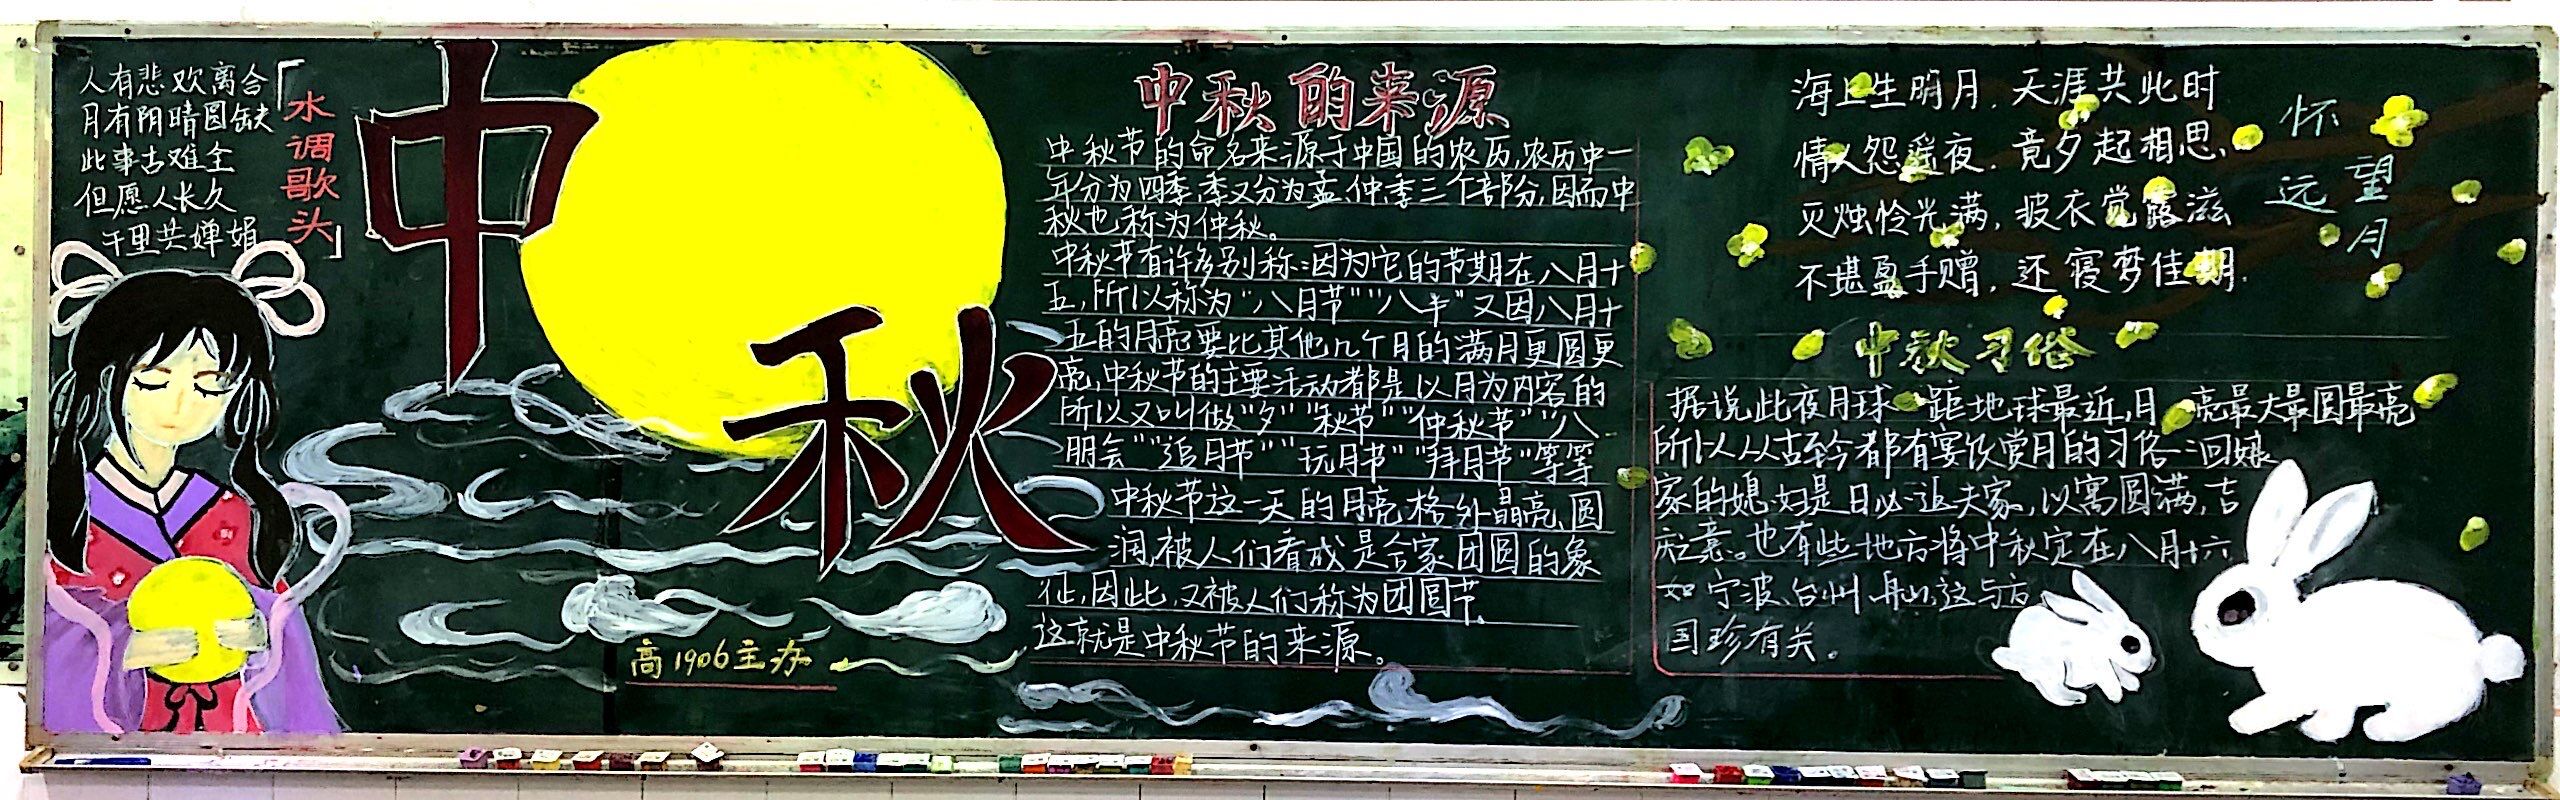 人有悲欢离合
月有阴晴圆缺
此事古难全
但愿人长久
千里共婵娟
「水调歌头」
中秋
高1906主办
中秋的来源
中秋节的命名来源于中国的农历,农历中一
年分为四季,季又分为孟,仲,季三个部分,因而中
秋也称为仲秋。
中秋节有许多别称:因为它的节期在八月十
五,所以称为“八月节”“八半”又因八月十
五的月亮要比其他几个月的满月更圆更
亮,中秋节的主要活动都是以月为内容的
所以又叫做“夕”“秋节”“仲秋节”“八
朋会”“追月节”“玩月节”“拜月节”等等
中秋节这一天的月亮格外晶亮、圆
润,被人们看成是合家团圆的象
征,因此,又被人们称为团圆节.
这就是中秋节的来源。
海上生明月,天涯共此时
情人怨遥夜,竟夕起相思、
灭烛怜光满,披衣觉露滋
不堪盈手赠,还寝梦佳期.
望月
怀远
中秋习俗
据说此夜月球距地球最近,月亮最大最圆最亮
所以从古至今都有宴饮赏月的习俗:回娘
家的媳妇是日必返夫家,以寓圆满,吉
庆意。也有些地方将中秋定在八月十六
如宁波、台州、舟山,这与方
国珍有关。